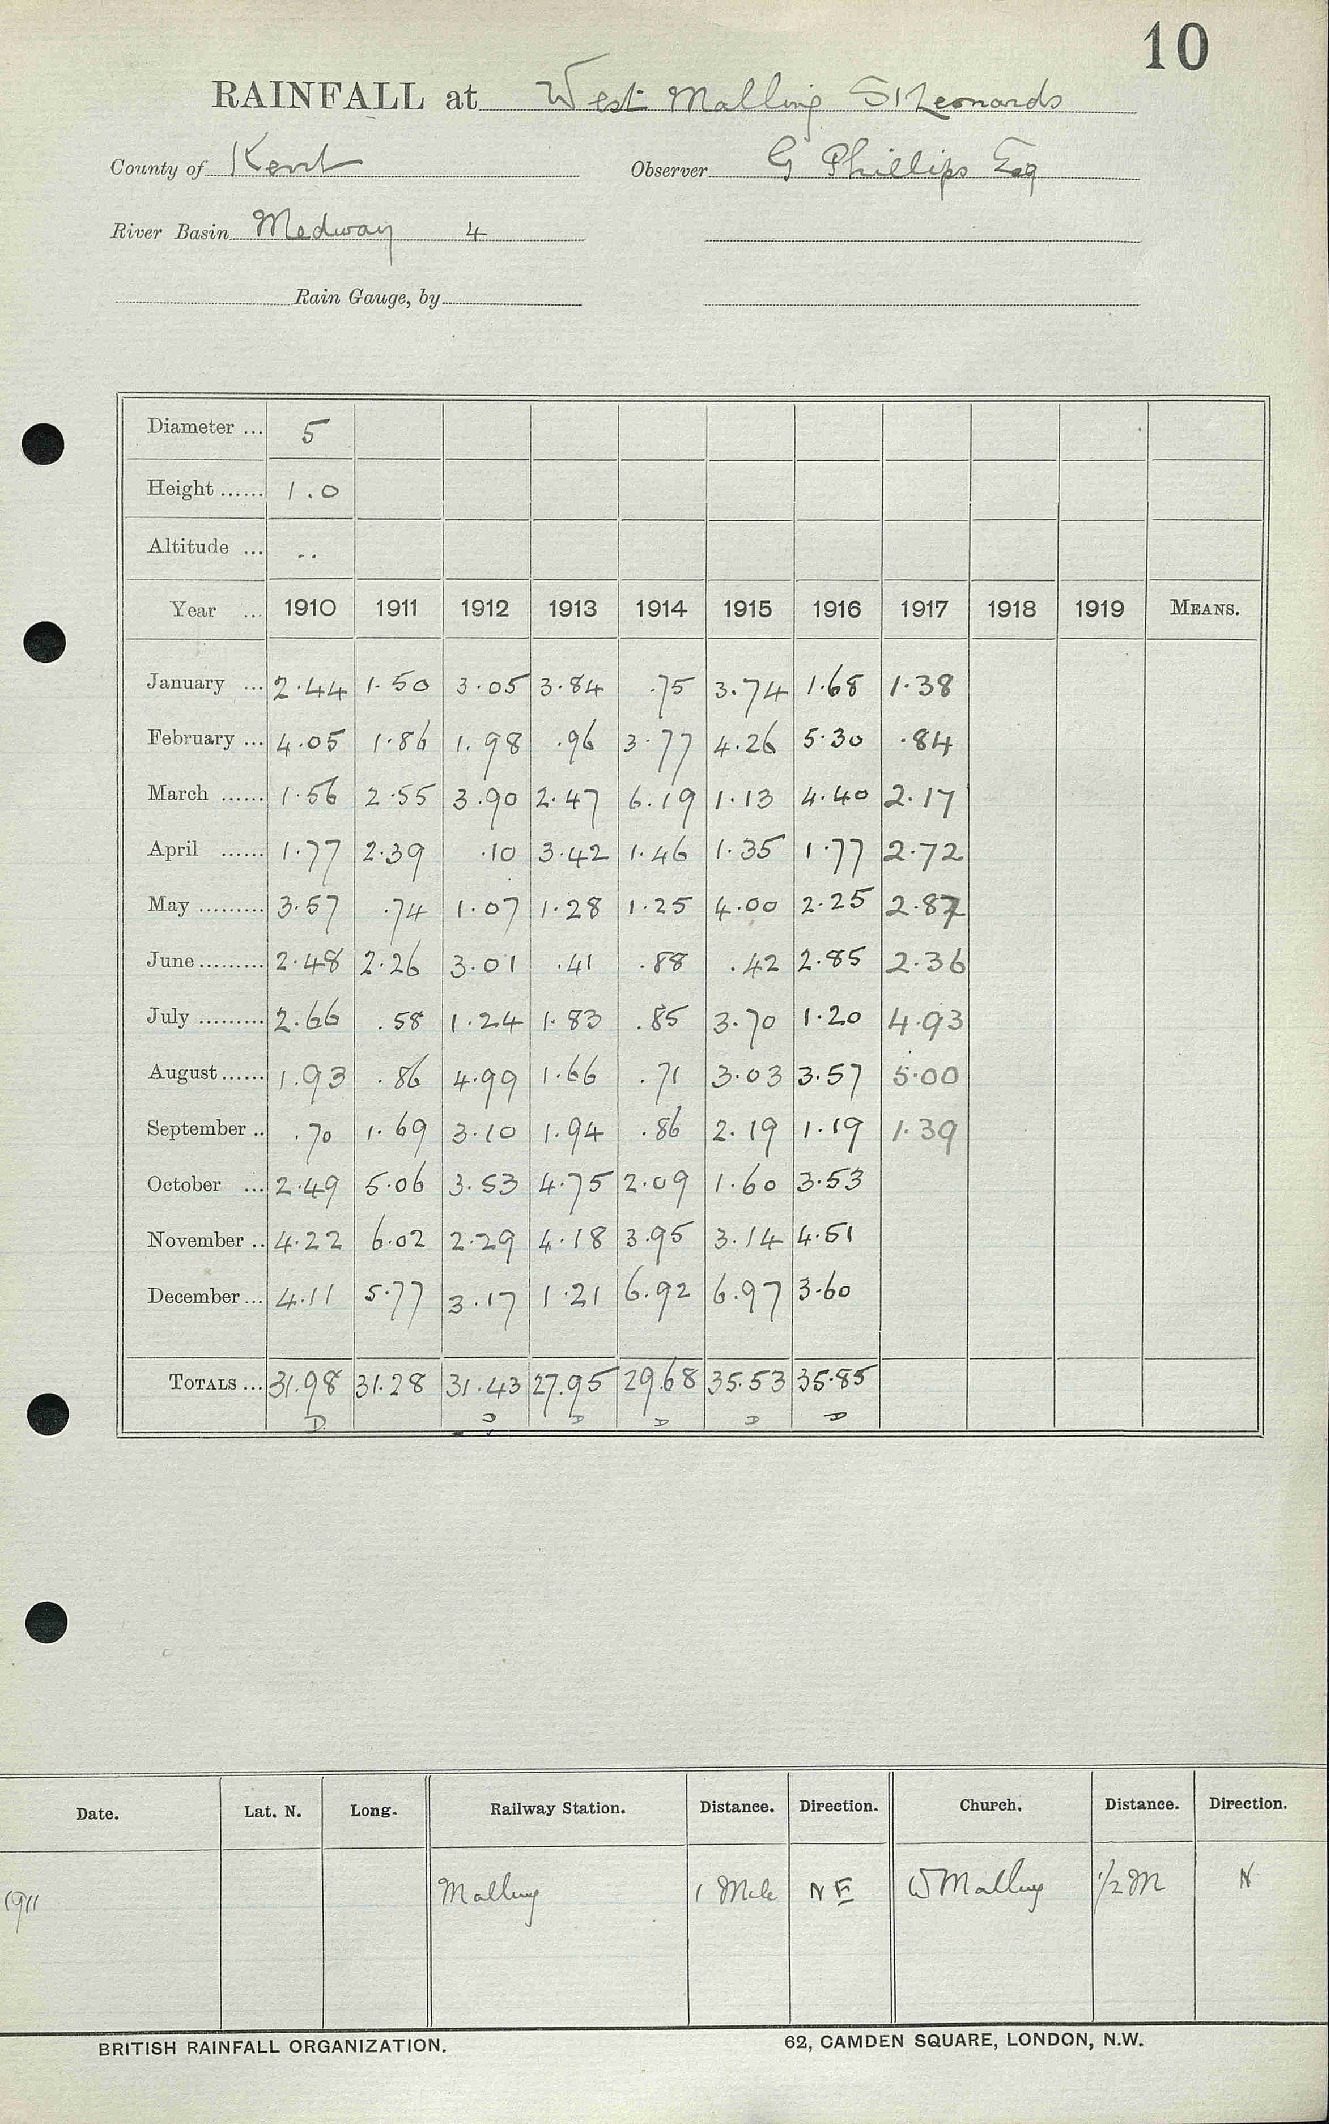 10
RAINFALL at West Malling St Leonards
County of Kent Observer G Phillips Esq
River Basin Medway 4
Rain Gauge, by
Diameter ... 5
Height ...... 1.0
Altitude ... ..
Year ... 1910 1911 1912 1913 1914 1915 1916 1917 1918 1919 MEANS.
January ... 2.44 1.50 3.05 3.84 .75 3.74 1.68 1.38
February ... 4.05 1.86 1.98 .96 3.77 4.26 5.30 .84
March ...... 1.56 2.55 3.90 2.47 6.19 1.13 4.40 2.17
April ...... 1.77 2.39 .10 3.42 1.46 1.35 1.77 2.72
May ......... 3.57 .74 1.07 1.28 1.25 4.00 2.25 2.87
June ......... 2.48 2.26 3.01 .41 .88 .42 2.85 2.36
July ......... 2.66 .58 1.24 1.83 .85 3.70 1.20 4.93
August ...... 1.93 .86 4.99 1.66 .71 3.03 3.57 5.00
September .. .70 1.69 3.10 1.94 .86 2.19 1.19 1.39
October ... 2.49 5.06 3.53 4.75 2.09 1.60 3.53
November .. 4.22 6.02 2.29 4.18 3.95 3.14 4.51
December ... 4.11 5.77 3.17 1.21 6.92 6.97 3.60
TOTALS ... 31.98 31.28 31.43 27.95 29.68 35.53 35.85
D D D D D D
Date. Lat. N. Long. Railway Station. Distance. Direction. Church. Distance. Direction.
1911 Malling 1 Mile NE W Malling 1/2 M N
BRITISH RAINFALL ORGANIZATION. 62, CAMDEN SQUARE, LONDON, N.W.